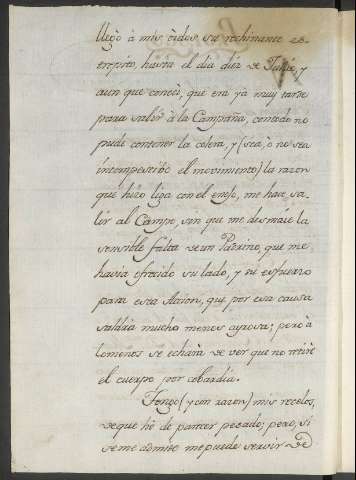 llegò à mis oidos su rechinante es-
trepito, hasta el dia diez de Julio, y
aun que conocì, que era yà muy tarde
para salir à la Campaña, contodo no
pude contener la colera, y (sea, ò no sea
intempestibo el movimiento) la razon
que hizo liga con el enojo, me hace sa-
lir al Campo, sin que me desmaie la
sensible falta de un Padrino, que me
havia ofrecido su lado, y su esfuerzo
para esta Accion, que por esta causa
saldrà mucho menos ayrosa; pero à
lo menos se echarà de ver que no retirè
el cuerpo por cobardia.
Tengo (y con razon) mis recelos,
de que hè de parecer pesado; pero, si
se me admite me puede servir de